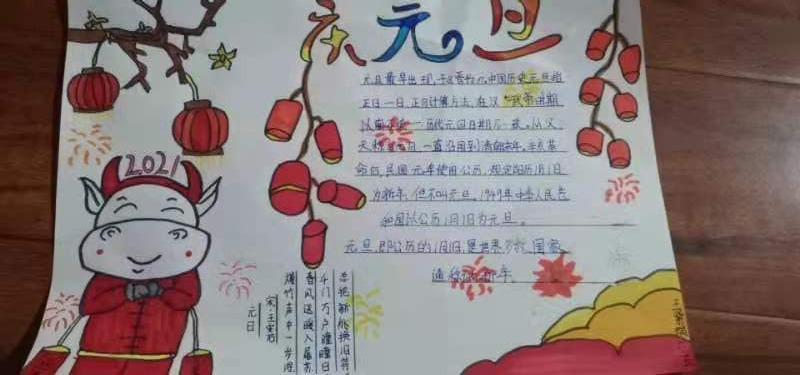 庆元旦
2021
元旦最早出现于《晋书》,中国历史元旦指
正月一日,正月计算方法,在汉武帝时期
以前
历代元旦日期不一致。从汉
一直沿用到清朝末年。辛亥革
命后,民国元年使用公历,规定阳历1月1日
为新年,但不叫元旦。1949年中华人民共
和国以公历1月1日为元旦。
元旦,即公历的1月1日,是世界多数国家
通称的新年
元日
宋·王安石
爆竹声中一岁除
春风送暖入屠苏
千门万户曈曈日
总把新桃换旧符